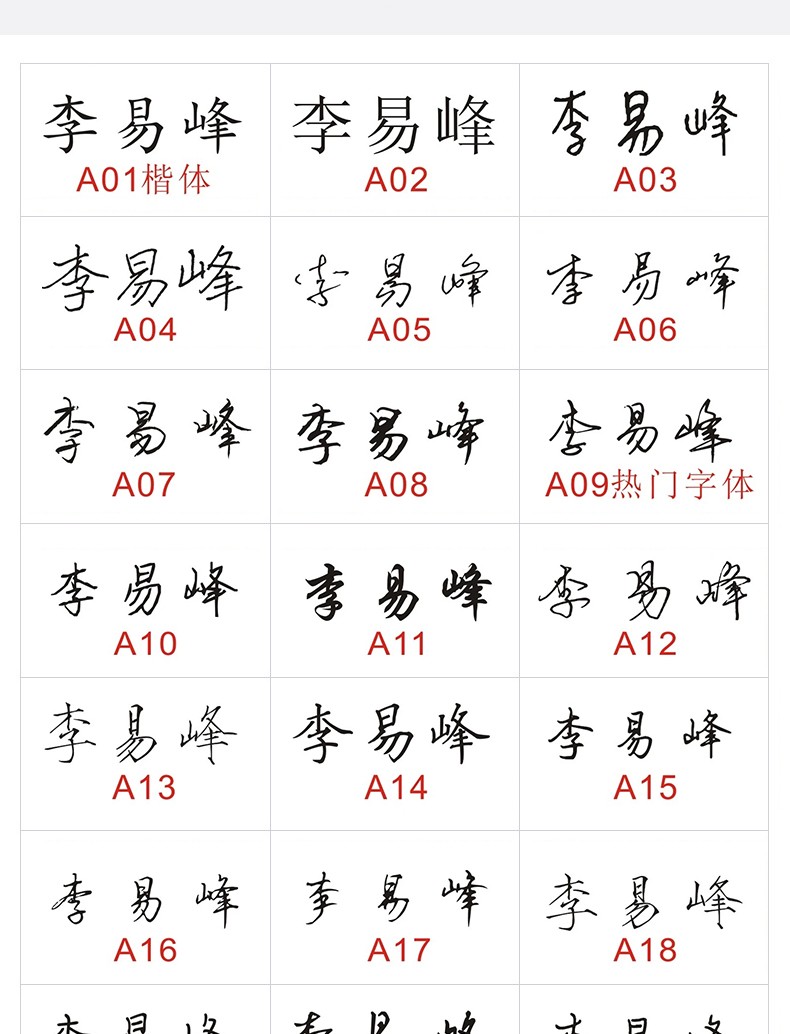 李易峰 李易峰 李易峰
A01楷体 A02 A03
李易峰 李易峰 李易峰
A04 A05 A06
李易峰 李易峰 李易峰
A07 A08 A09热门字体
李易峰 李易峰 李易峰
A10 A11 A12
李易峰 李易峰 李易峰
A13 A14 A15
李易峰 李易峰 李易峰
A16 A17 A18